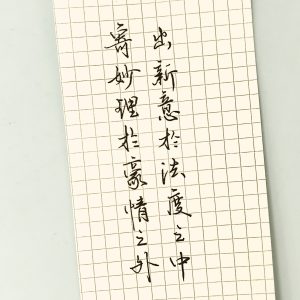 出新意於法度之中
寄妙理於豪情之外